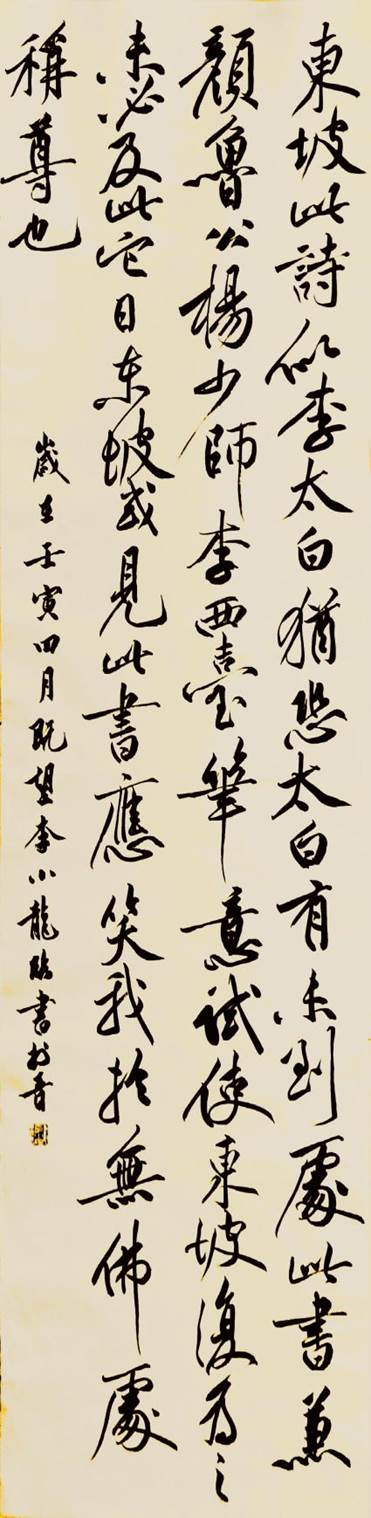 東坡此詩似李太白猶恐太白有未到處此書兼
顏魯公楊少師李西臺筆意試使東坡復為之
未必及此它日東坡或見此書應笑我於無佛處
稱尊也
歲在壬寅四月既望李小龍臨書於晋